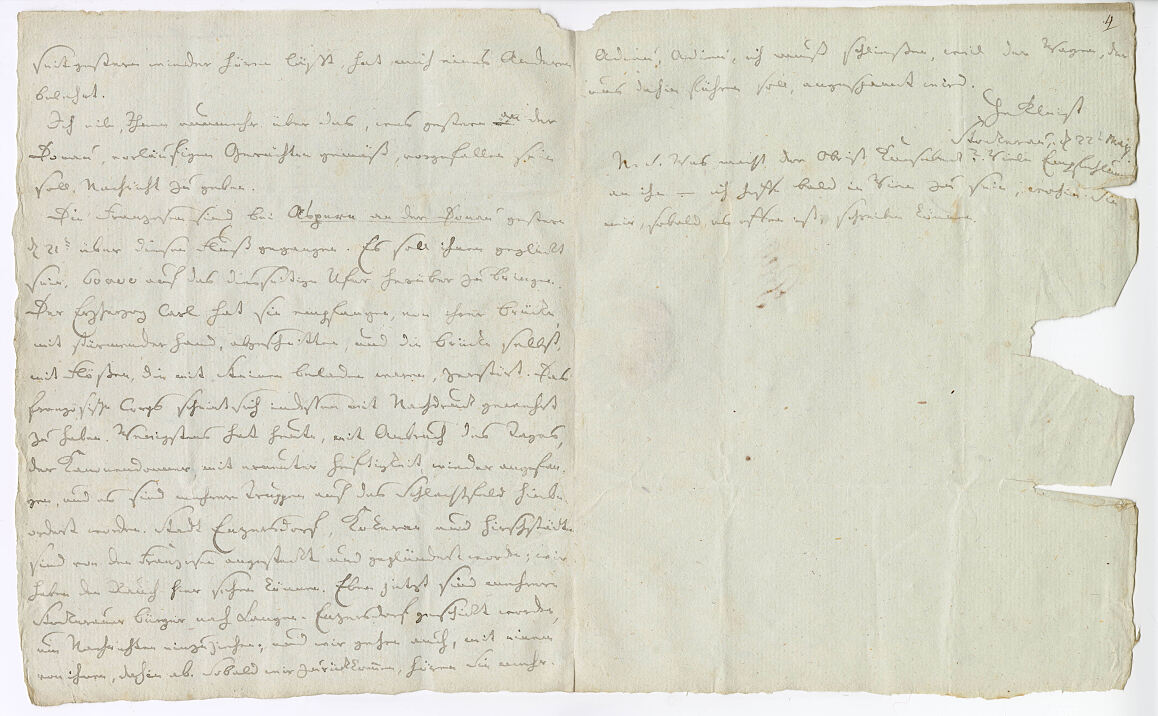 seit gestern wieder hören läßt, hat mich eines Andern
belehrt.
Ich eile, Ihnen nunmehr über das, was gestern an der
Donau, vorläufigen Gerüchten gemäß, vorgefallen sein
soll, Nachricht zu geben.
Die Franzosen sind bei Aspern an der Donau gestern
d 21t über diesen Fluß gegangen. Es soll ihnen geglückt
sein, 60000 auf das diesseitige Ufer herüber zu bringen.
Der Erzherzog Carl hat sie empfangen, von ihrer Brücke,
mit stürmender Hand, abgeschnitten, und die Brücke selbst,
mit Flößen, die mit Steinen beladen waren, zerstört. Das
französische Corps scheint sich indessen mit Nachdruck gewehrt
zu haben. Wenigstens hat heute, mit Anbruch des Tages,
der Kanonendonner mit erneuter Heftigkeit, wieder angefan-
gen, und es sind mehrere Truppen auf das Schlachtfeld
ordert worden. Stadt Enzersdorf, und Hirschstädten
sind von den Franzosen angesteckt und geplündert worden; wir
haben den Rauch hier sehen können. Eben jetzt sind mehrere
Stockerauer Bürger nach Langen-Enzersdorf geschickt worden,
um Nachrichten einzuziehen; und wir gehen auch, mit einem
von ihnen, dahin ab. Sobald wir zurückkommen, hören Sie mehr.
4
Adieu, Adieu, ich muß schließen, weil der Wagen, der
uns dahin führen soll, angespannt wird.
H v Kleist
Stockerau, d 22t Mai
N. S. Was macht der Obrist? Viele Empfehlungen
an ihn — ich hoffe bald in Wien zu sein, wohin Sie
mir, sobald es offen ist, schreiben können.